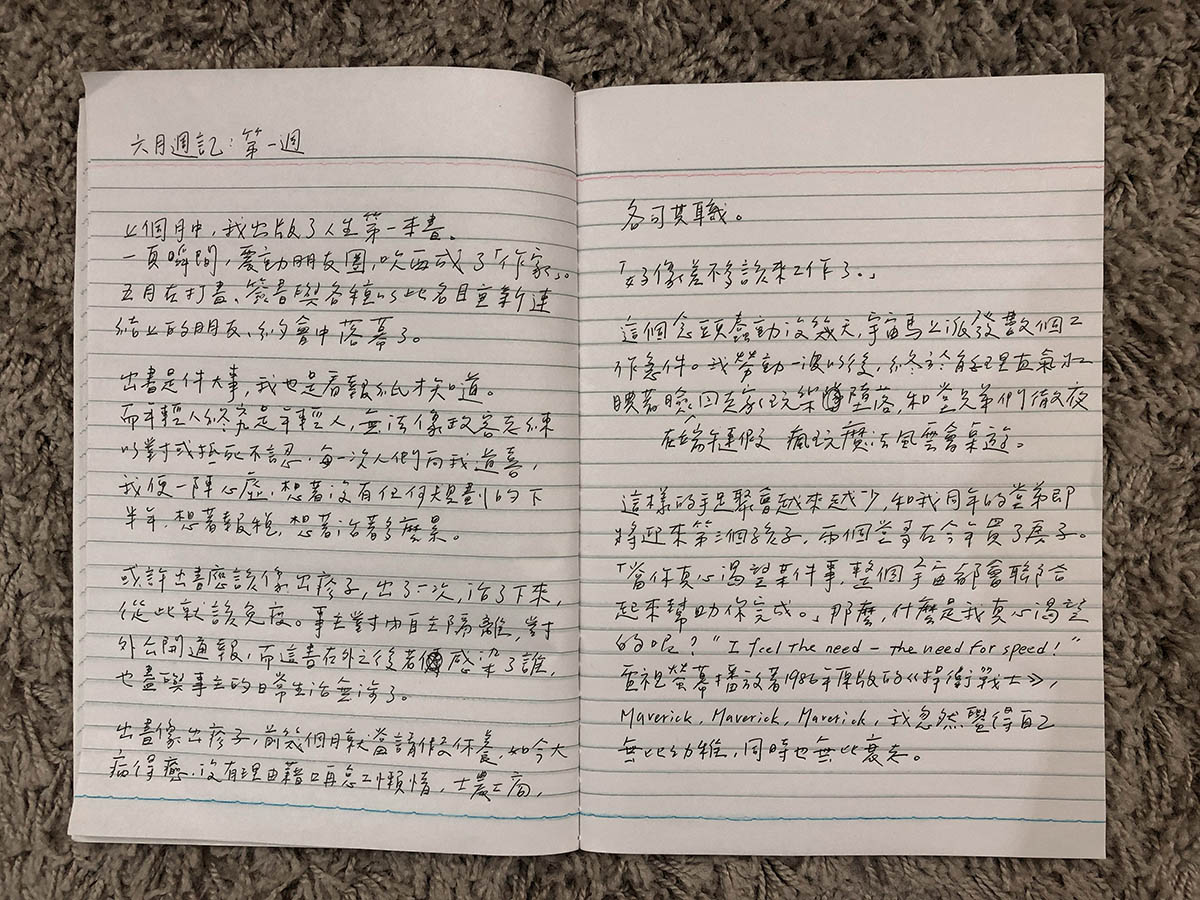 六月週記：第一週
上個月中，我出版了人生第一本書。
一頁瞬間，震動朋友圈，吹海成了「作家」。
五月在打書、簽書與各種以此名目重新連
結上的朋友、約會中落幕了。
出書是件大事，我也是看報紙才知道。
而年輕人終究是年輕人，無法像政客老練
以對或抵死不認，每一次人們向我道喜，
我便一陣心虛，想著沒有任何規劃的下
半年，想著報稅，想著活著多麼累。
或許出書應該像出疹子，出了一次，活了下來，
從此就該免疫。事主對內自主隔離，對
外公開通報，而這書在外之後若感染了誰，
也盡與事主的日常生活無涉了。
出書像出疹子，前幾個月就當請假休養，如今大
病得癒，沒有理由藉口再怠工懶惰，士農工商，
各司其職。
「好像差不多該來工作了。」
這個念頭蠢動沒幾天，宇宙馬上派發數個工
作急件。我勞動一波以後，終於能理直氣壯
腆著臉回老家玩樂墮落，和堂兄弟們徹夜
在端午連假 瘋玩魔法風雲會桌遊。
這樣的手足聚會越來越少，和我同年的堂弟即
將迎來第三個孩子，兩個堂哥在今年買了房子。
「當你真心渴望某件事，整個宇宙都會聯合
起來幫助你完成。」那麼，什麼是我真心渴望
的呢？“I feel the need — the need for speed!”
電視螢幕播放著1986年原版的《捍衛戰士》，
Maverick, Maverick, Maverick，我忽然覺得自己
無比幼稚，同時也無比衰老。